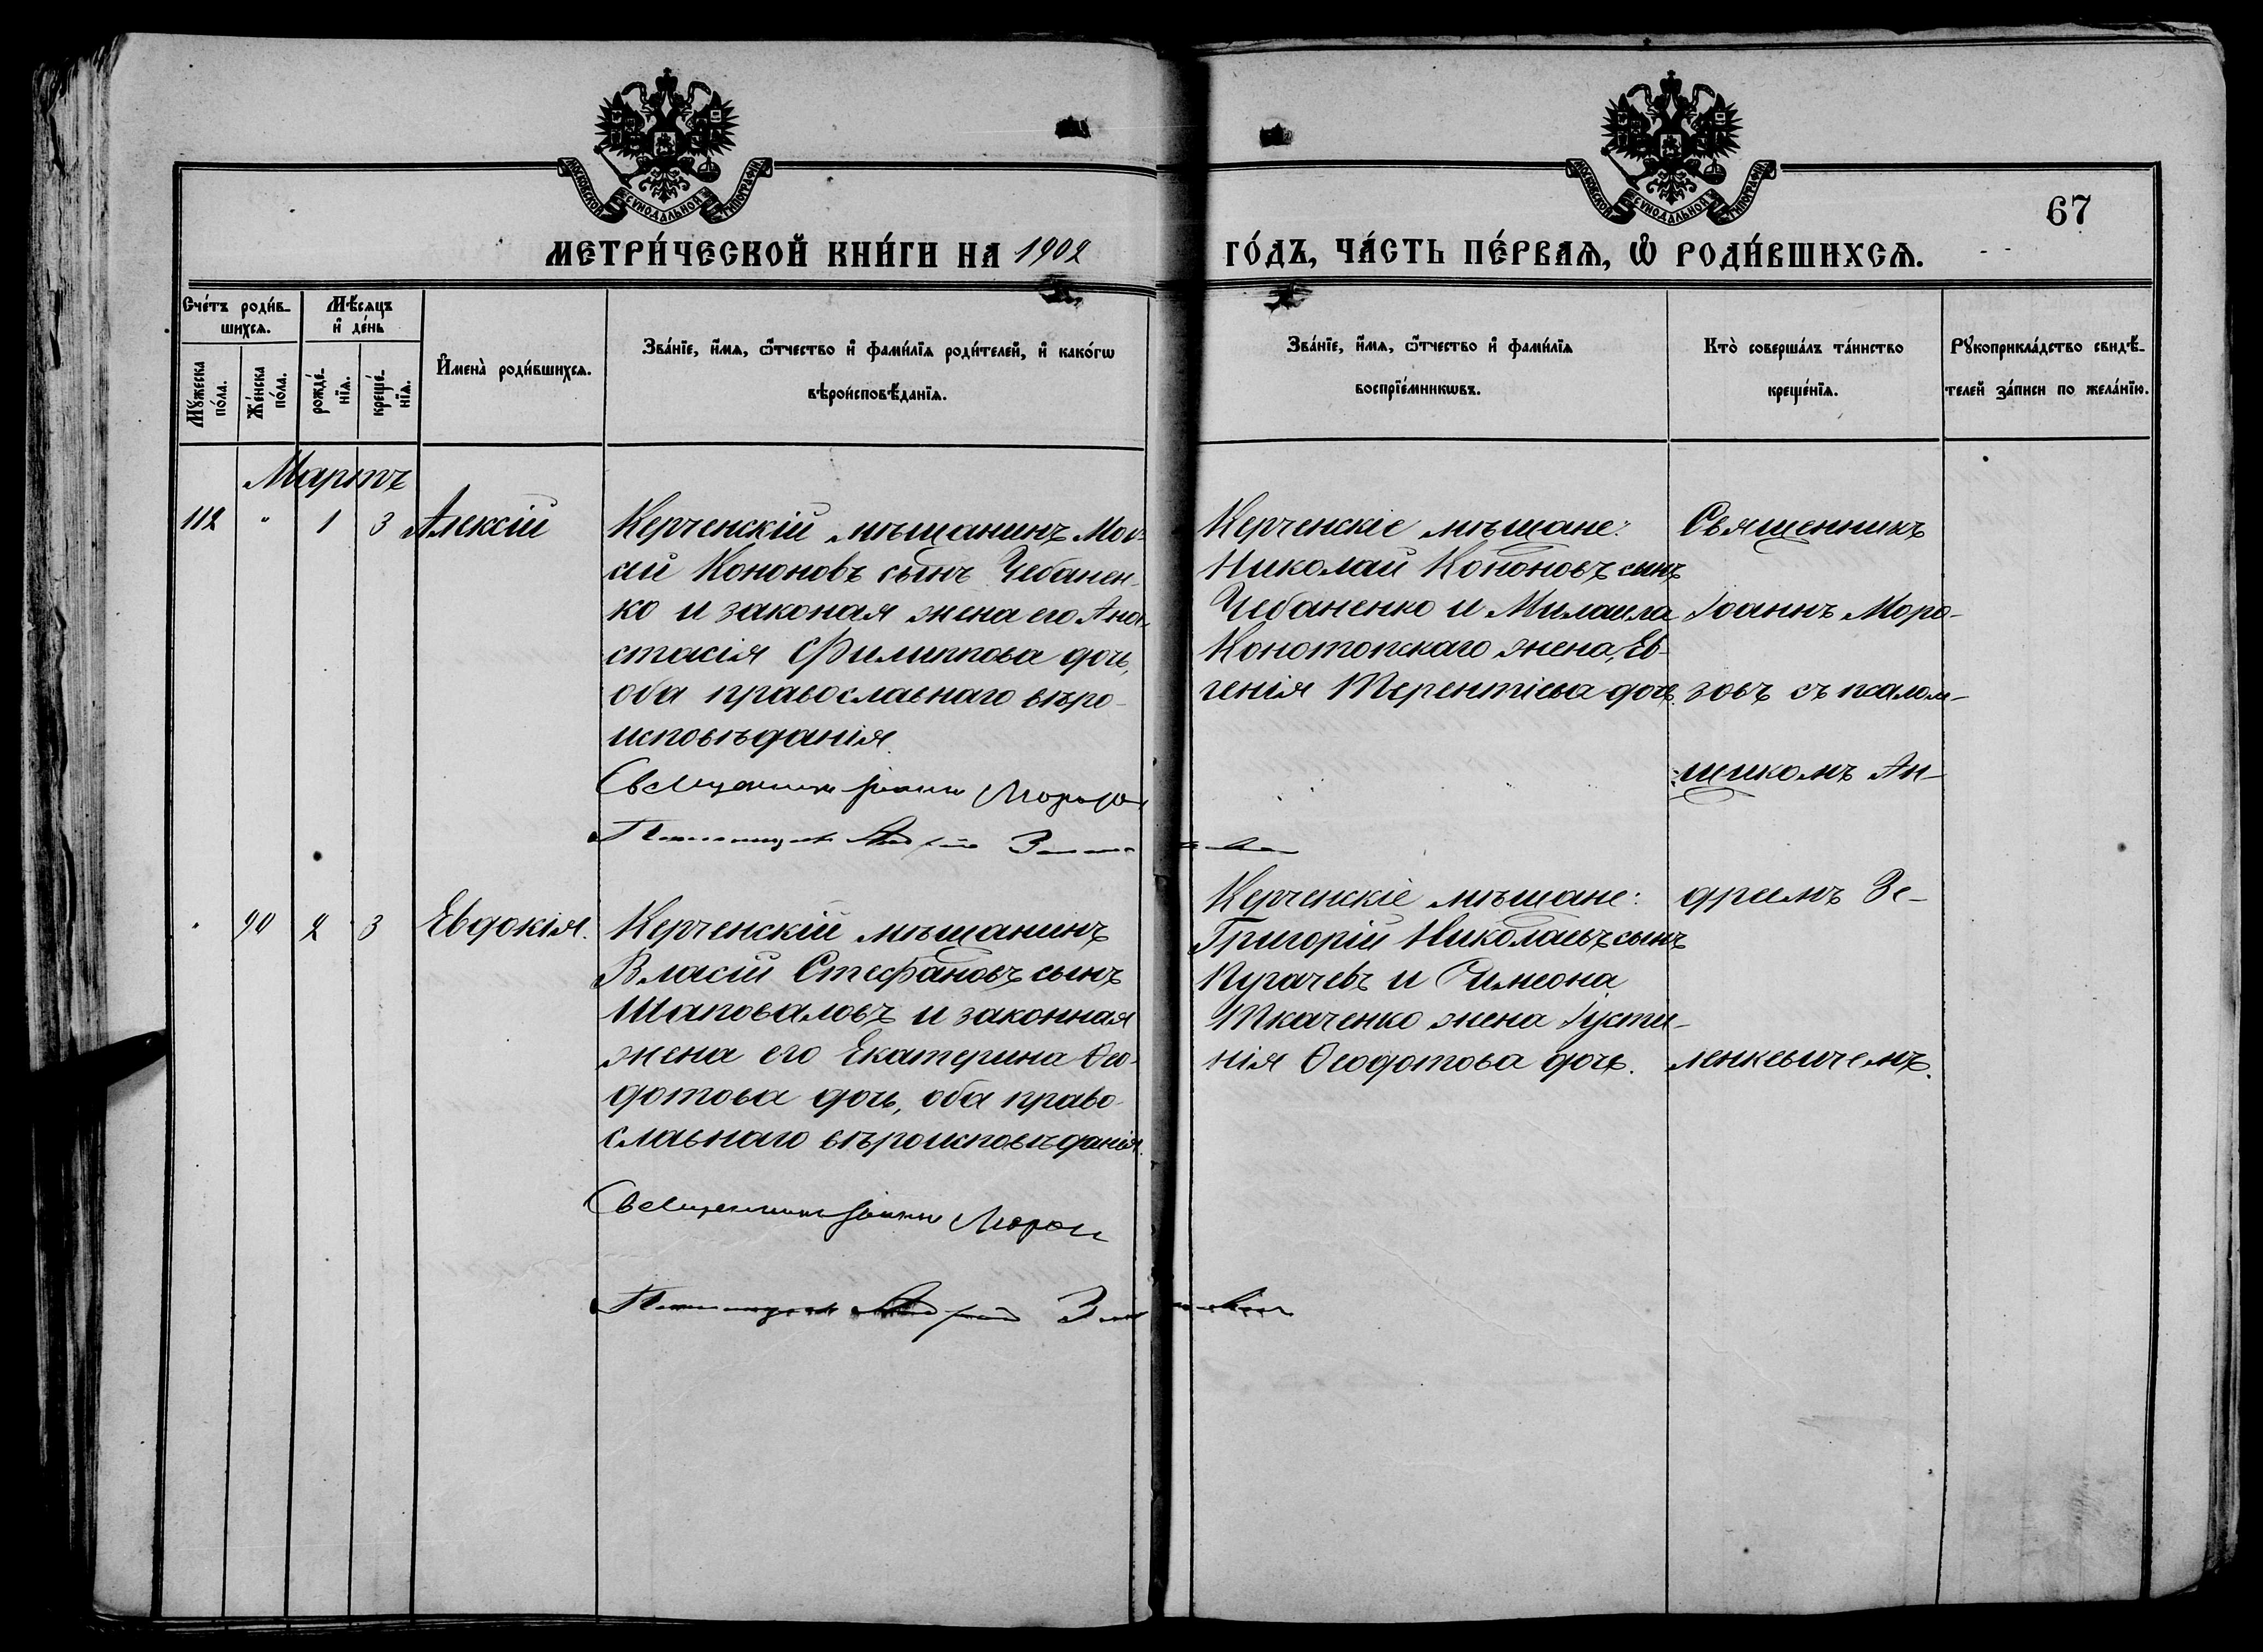 МОСКОВСКОЙ СѴНОДАЛЬНОЙ ТИПОГРАФІИ
МОСКОВСКОЙ СѴНОДАЛЬНОЙ ТИПОГРАФІИ
67
МЕТРИ́ЧЕСКОЙ КНИ́ГИ НА 1902
ГО́ДЪ, ЧА́СТЬ ПЕ́РВАѦ, Ѽ РОДИ́ВШИХСѦ.
Сче́тъ роди́в-
шихсѧ.
Мѣ́сѧцъ
и҆ де́нь
Мꙋ́жеска
по́ла.
Же́нска
по́ла.
рожде́-
нїѧ.
креще́-
нїѧ.
И҆мена̀ роди́вшихсѧ.
Зва́нїе, и҆́мѧ, ѻ҆́тчество и҆ фами́лїѧ роди́телей, и҆ како́гѡ
вѣроисповѣ́данїѧ.
Зва́нїе, и҆́мѧ, ѻ҆́тчество и҆ фами́лїѧ
воспрїе́мникѡвъ.
Кто̀ соверша́лъ та́инство
креще́нїѧ.
Рꙋкоприкла́дство свидѣ́-
телей за́писи по жела́нїю.
Мартъ
112 " 1 3 Алексій
Керченскій мѣщанинъ Мои-
сій Кононовъ сынъ Чебанен-
ко и законая жена его Ана-
стасія Филиппова дочь,
оба православнаго вѣро-
исповѣданія.
Священникъ Іоаннъ Морозовъ
Псаломщикъ Андрей Зеленкевичъ
Керченскіе мѣщане:
Николай Кононовъ сынъ
Чебаненко и Михаила
Конотопскаго жена, Ев-
генія Терентіева дочь.
Священникъ
Іоаннъ Моро-
зовъ съ псалом-
щикомъ Ан-
дреемъ Зе-
ленкевичемъ.
" 90 2 3 Евдокія.
Керченскій мѣщанинъ
Власій Стефановъ сынъ
Шаповаловъ и законная
жена его Екатерина Ѳео-
дотова дочь, оба право-
славнаго вѣроисповѣданія.
Священникъ Іоаннъ Морозовъ
Псаломщикъ Андрей Зеленкевичъ
Керченскіе мѣщане:
Григорій Николаевъ сынъ
Пугачевъ и Симеона
Ткаченко жена Іусти-
нія Ѳеодотова дочь.